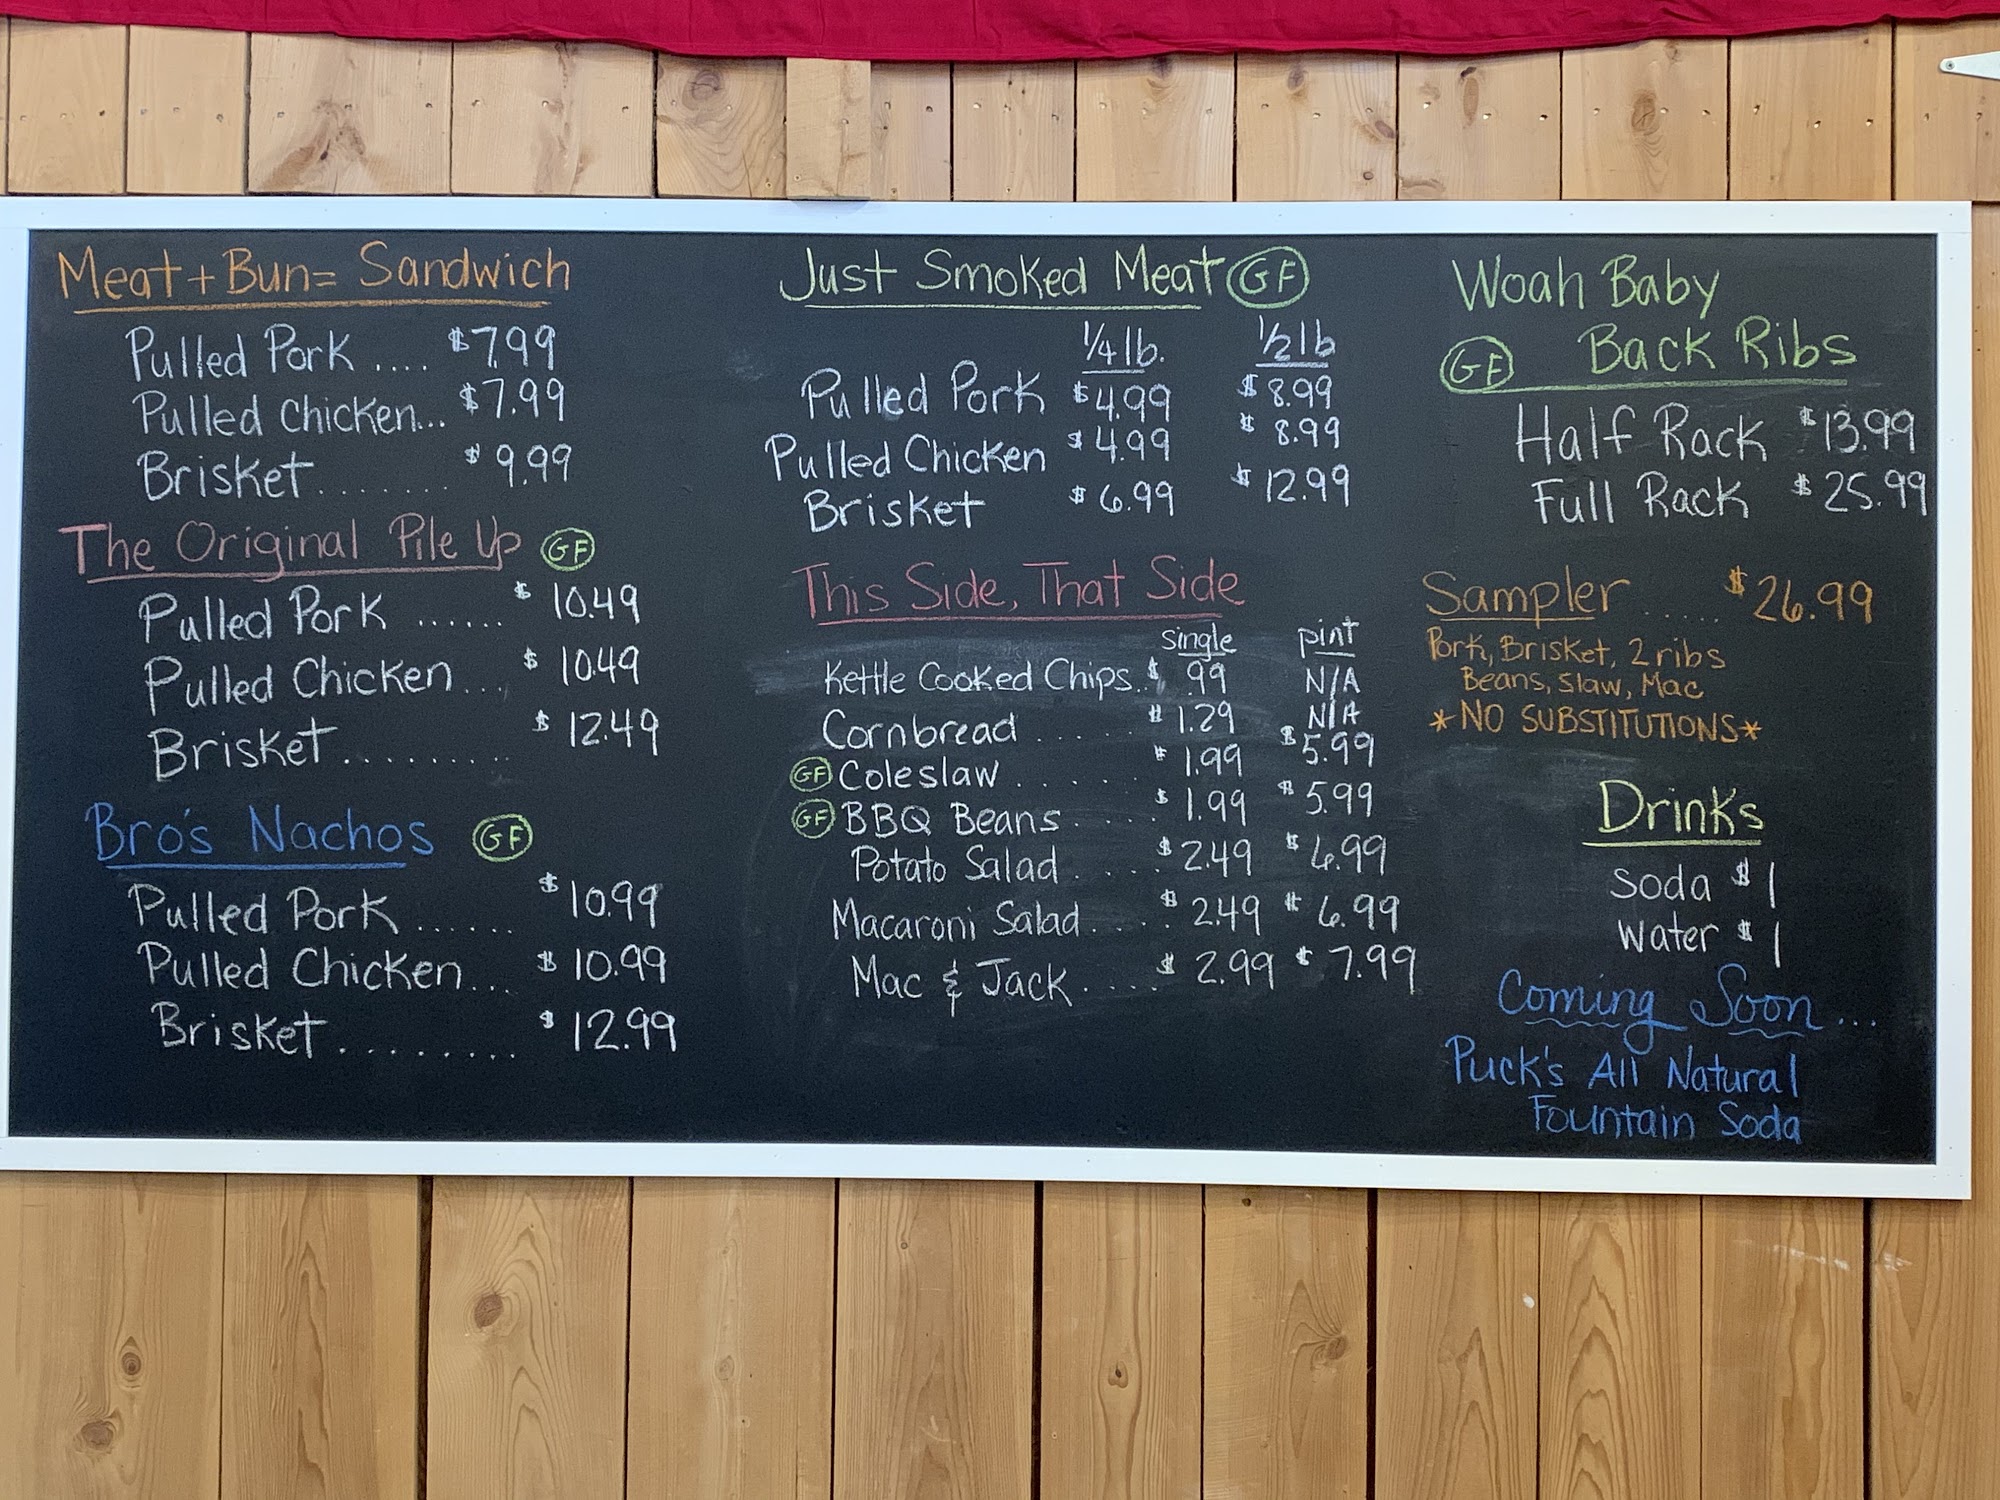 Meat + Bun = Sandwich
Pulled Pork .... $7.99
Pulled Chicken... $7.99
Brisket........ $9.99
The Original Pile Up GF
Pulled Pork ...... $10.49
Pulled Chicken... $10.49
Brisket.......... $12.49
Bro's Nachos GF
Pulled Pork ...... $10.99
Pulled Chicken... $10.99
Brisket......... $12.99
Just Smoked Meat GF
1/4 lb. 1/2 lb
Pulled Pork $4.99 $8.99
Pulled Chicken $4.99 $8.99
Brisket $6.99 $12.99
This Side, That Side
single pint
Kettle Cooked Chips.. $.99 N/A
Cornbread ..... $1.29 N/A
GF Coleslaw ...... $1.99 $5.99
GF BBQ Beans ..... $1.99 $5.99
Potato Salad ..... $2.49 $6.99
Macaroni Salad ..... $2.49 $6.99
Mac & Jack ..... $2.99 $7.99
Woah Baby
GF Back Ribs
Half Rack $13.99
Full Rack $25.99
Sampler ..... $26.99
Pork, Brisket, 2 ribs
Beans, Slaw, Mac
*NO SUBSTITUTIONS*
Drinks
Soda $1
Water $1
Coming Soon...
Puck's All Natural
Fountain Soda